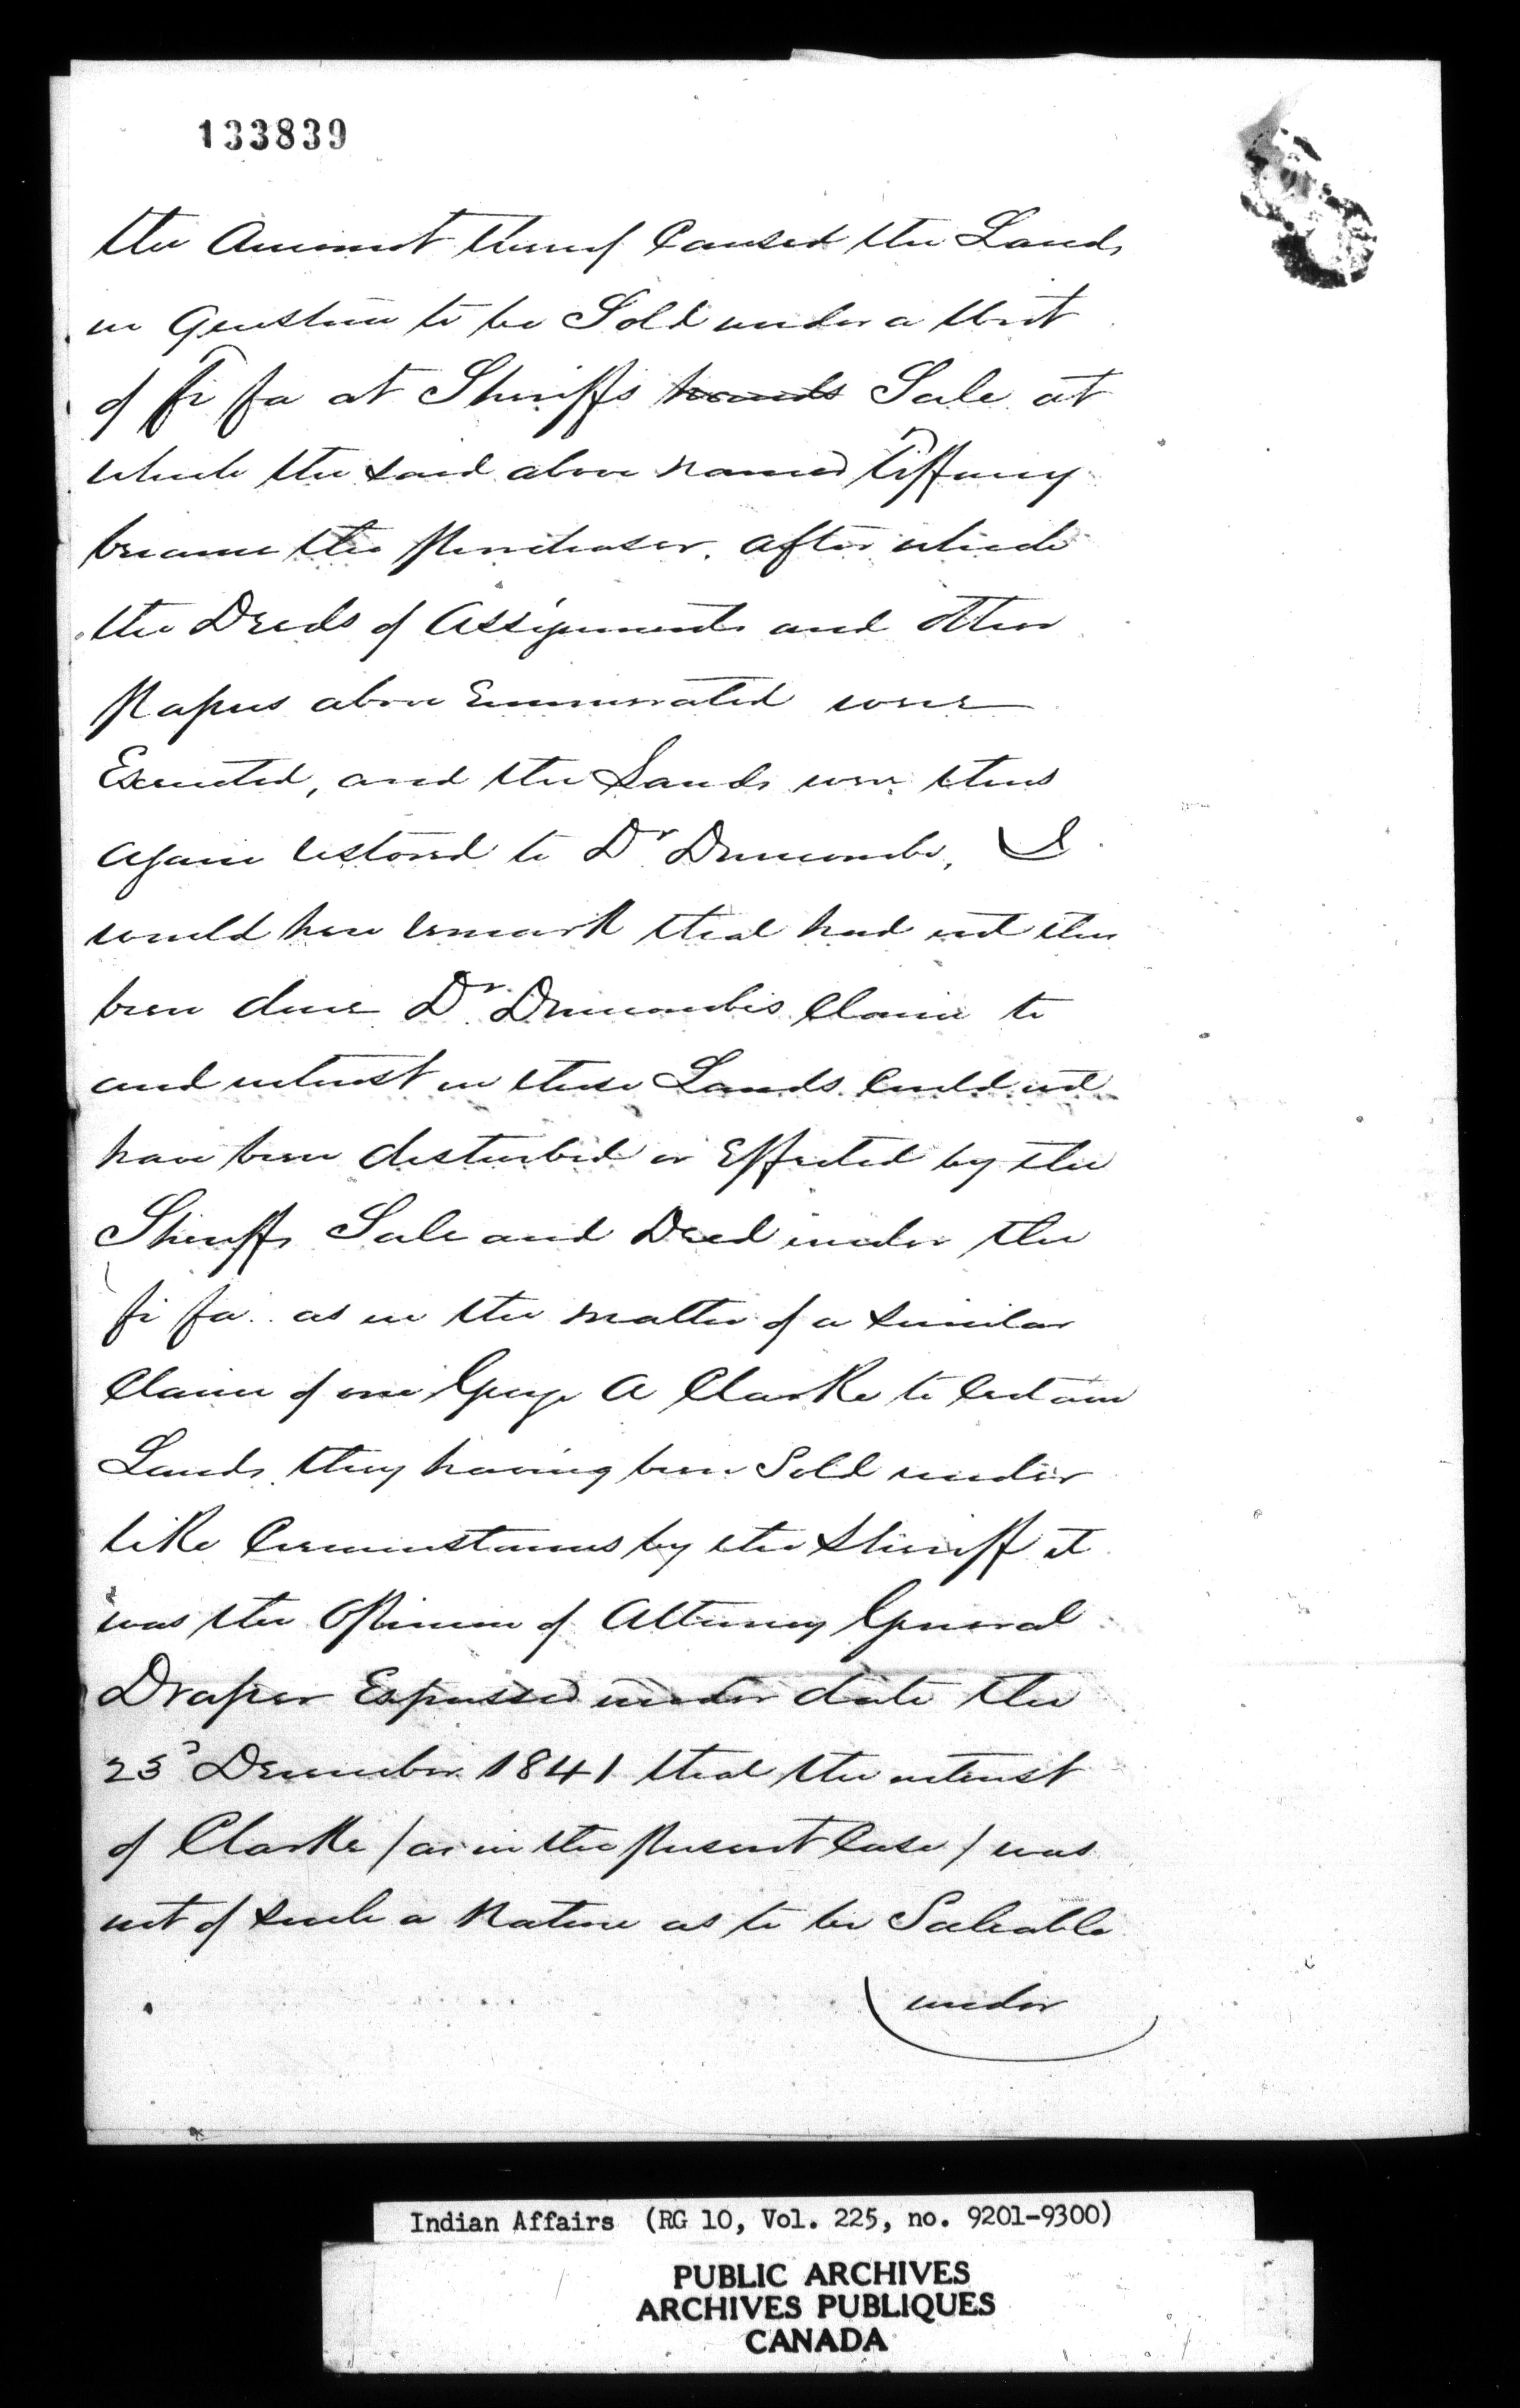 133839
the Amount thereof Caused the Lands
in Question to be Sold under a Writ
of fi fa at Sheriffs hands Sale at
which the said above named Tiffany
became the Purchaser. after which
the Deeds of Assignments and other
Papers above Enumerated were
Executed, and the Lands were thus
again restored to Dr Duncombe, I
would here remark that had not this
been done Dr Duncombes Claim to
and interest in these Lands could not
have been disturbed or Effected by the
Sheriffs Sale and Deed under the
fi fa. as in the matter of a similar
Claim of one George A Clarke to Certain
Lands they having been Sold under
like Circumstances by the Sheriff it
was the Opinion of Attorney General
Draper Expressed under date the
23d December 1841 that the interest
of Clarke / as in the present Case / was
not of such a Nature as to be Saleable
under
Indian Affairs (RG 10, Vol. 225, no. 9201-9300)
PUBLIC ARCHIVES
ARCHIVES PUBLIQUES
CANADA